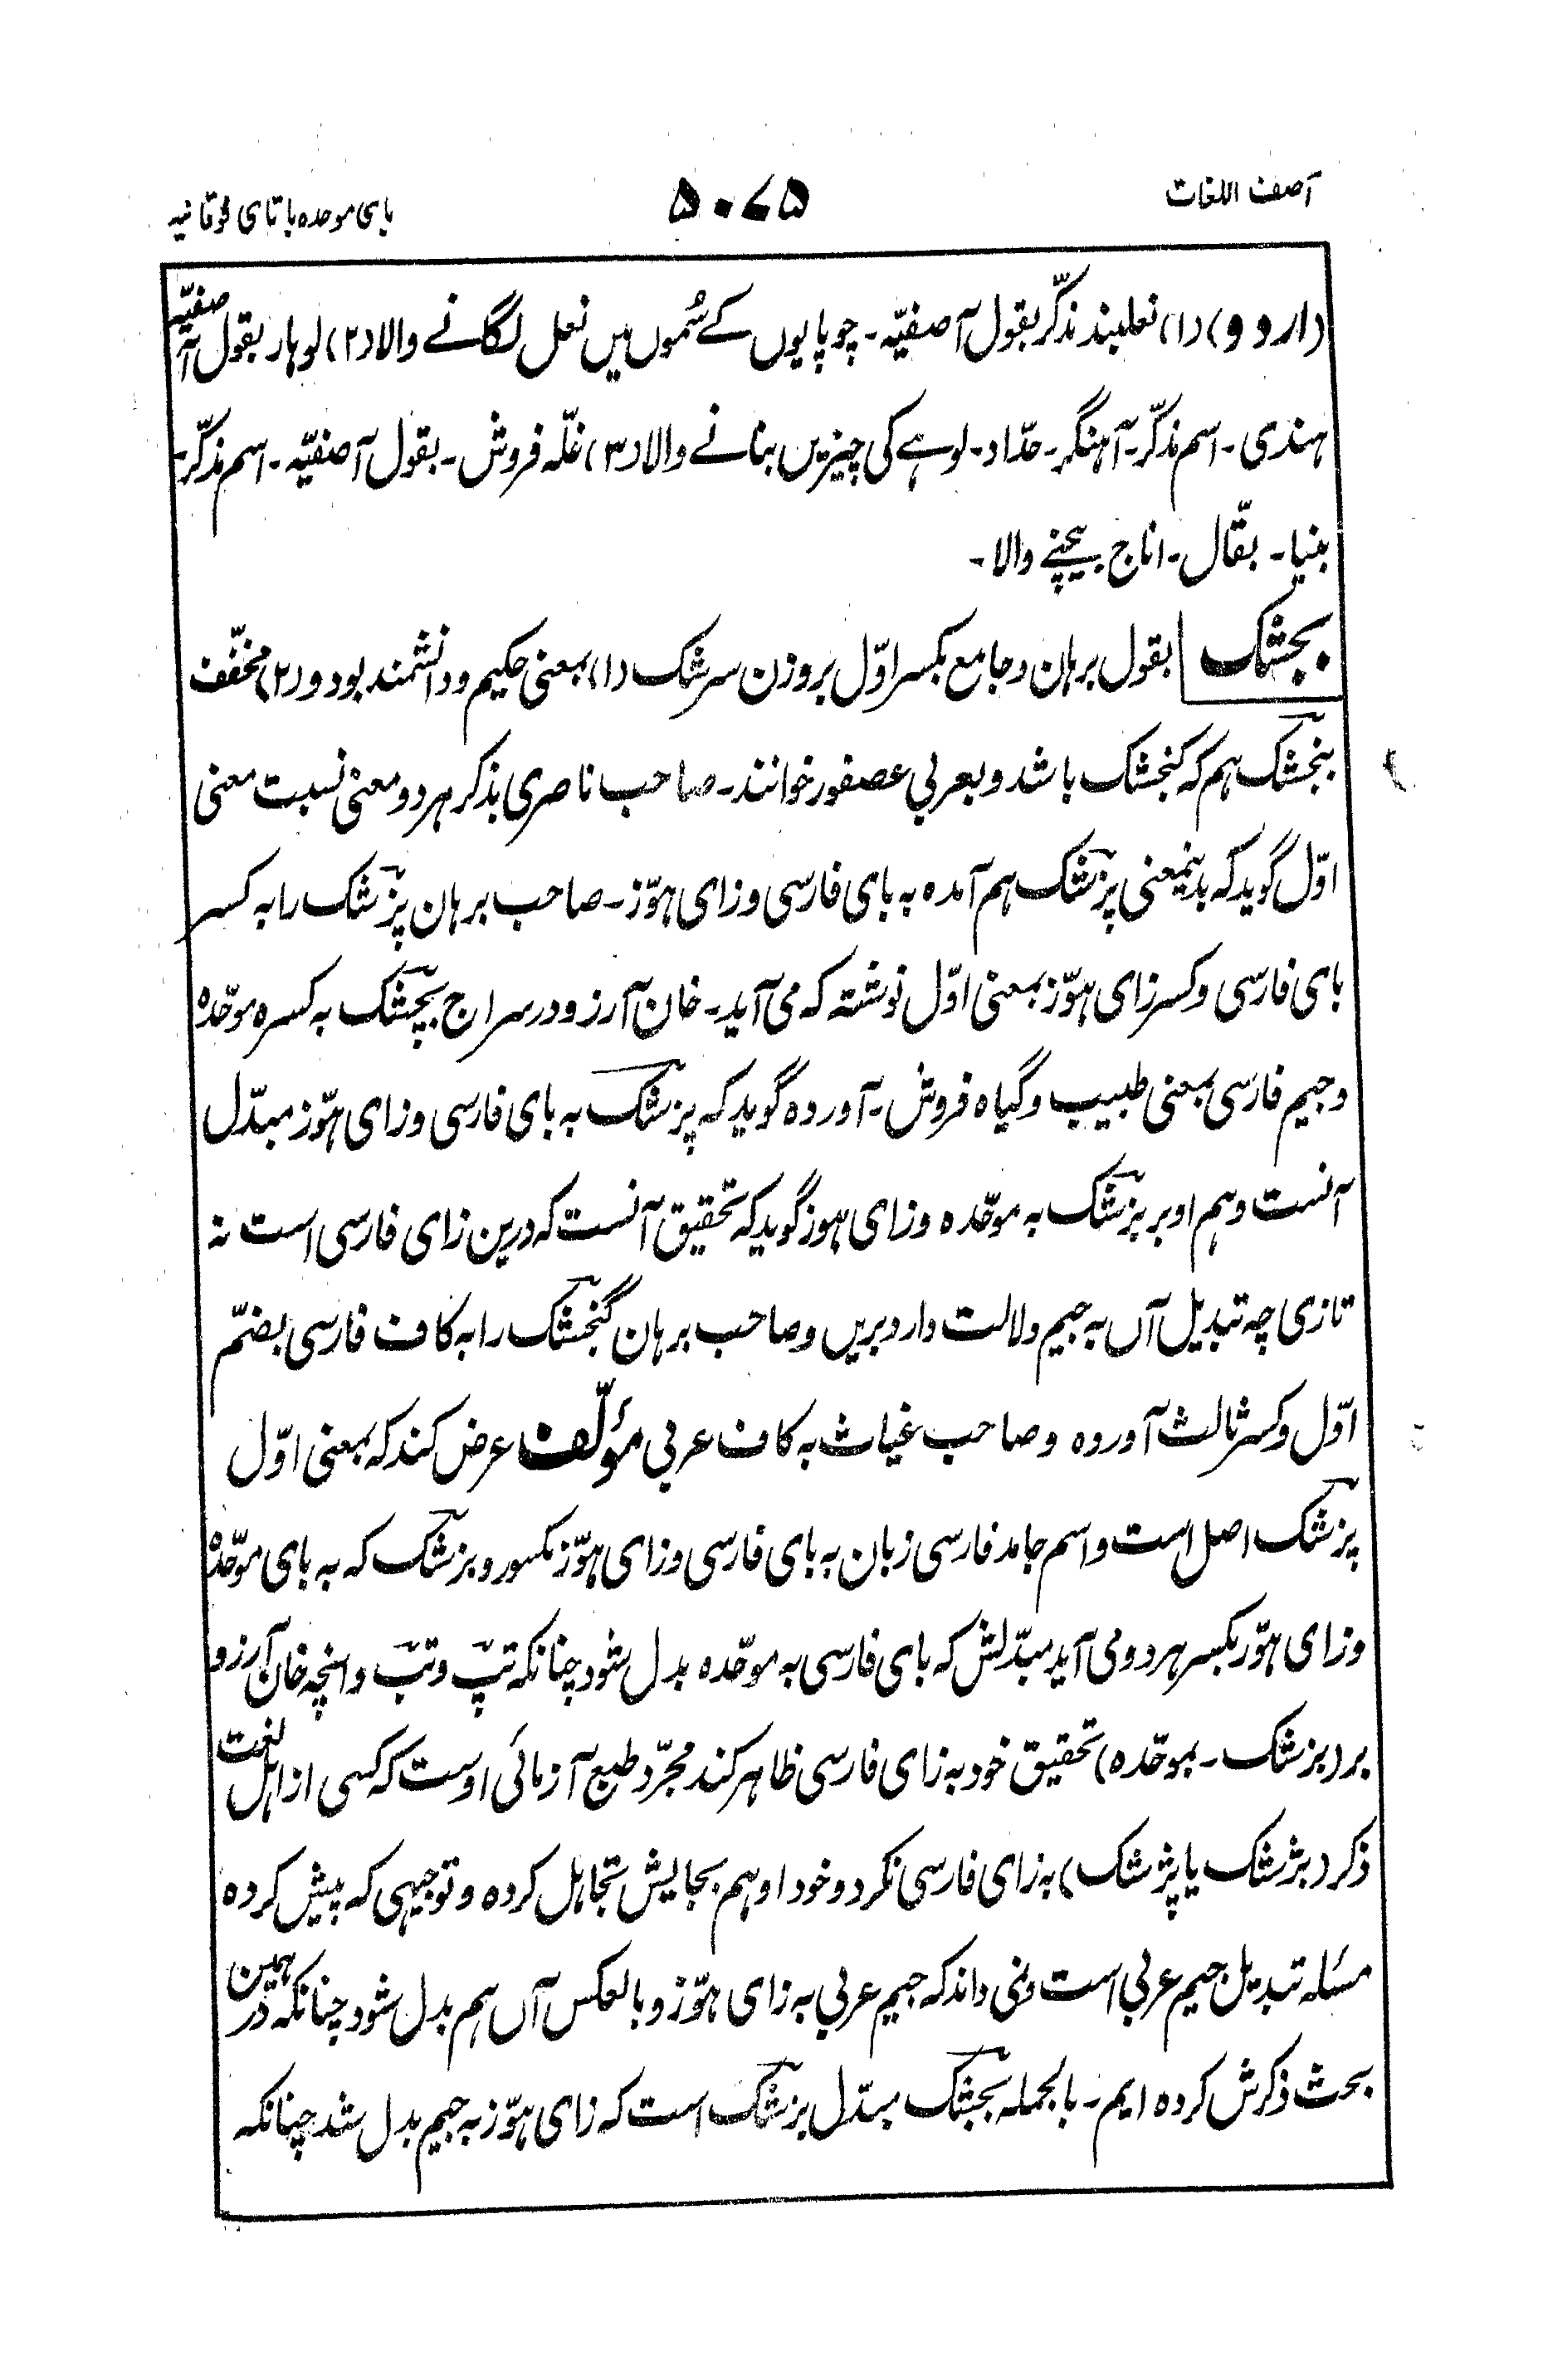 آصف اللغات
۵۰۷۵
بای موحده با تای فوقانیه
(اردو) (۱) نعلبند مذکّر بقول آصفیّہ۔ چوپایوں کے سُموں میں نعل لگانے والا (۲) لوہار بقول آصفیّہ
ہندی۔ اسم مذکّر۔ آہنگر۔ حدّاد۔ لوہے کی چیزیں بنانے والا (۳) غلّہ فروش۔ بقول آصفیّہ۔ اسم مذکّر۔
بنیا۔ بقّال۔ اناج بیچنے والا۔
بجشک بقول برہان و جامع بکسر اوّل بروزن سرشک (۱) بمعنی حکیم و دانشمند بود و (۲) مخفّف
بنجشک ہم کہ کنجشک باشد و بعربی عصفور خوانند۔ صاحب ناصری بذکر ہر دو معنی نسبت معنی
اوّل گوید کہ بدینمعنی پزشک ہم آمدہ بہ بای فارسی و زای ہوّز۔ صاحب برہان پزشک را بہ کسر
بای فارسی و کسر زای ہوّز بمعنی اوّل نوشتہ کہ می آید۔ خان آرزو در سراج بچشک بہ کسرہ موحّدہ
و جیم فارسی بمعنی طبیب و گیاہ فروش۔ آوردہ گوید کہ پزشک بہ بای فارسی و زای ہوّز مبدّل
آنست و ہم او بر بزشک بہ موحّدہ و زای ہوز گوید کہ تحقیق آنست کہ درین زای فارسی است نہ
تازی چہ تبدیل آں بہ جیم دلالت دارد بریں و صاحب برہان گنجشک را بہ کاف فارسی بضمّ
اوّل و کسر ثالث آوردہ و صاحب غیاث بہ کاف عربی مؤلّف عرض کند کہ بمعنی اوّل
پزشک اصل است و اسم جامد فارسی زبان بہ بای فارسی و زای ہوّز مکسور و بزشک کہ بہ بای موحّدہ
و زای ہوّز بکسر ہر دو می آید مبدّلش کہ بای فارسی بہ موحّدہ بدل شود چنانکہ تپ و تب و انچہ خان آرزو
بر (بزشک۔ بموحّدہ) تحقیق خود بہ زای فارسی ظاہر کند مجرّد طبع آزمائی اوست کہ کسی از اہل لغت
ذکر (بژشک یا پژشک) بہ زای فارسی نکرد و خود او ہم بجایش تجاہل کردہ و توجیہی کہ پیش کردہ
مسٔلہ تبدیل جیم عربی است و نمی داند کہ جیم عربی بہ زای ہوّز و بالعکس آں ہم بدل شود چنانکہ در ہمین
بحث ذکرش کردہ ایم۔ بالجملہ بجشک مبدّل بزشک است کہ زای ہوّز بہ جیم بدل شد چنانکہ